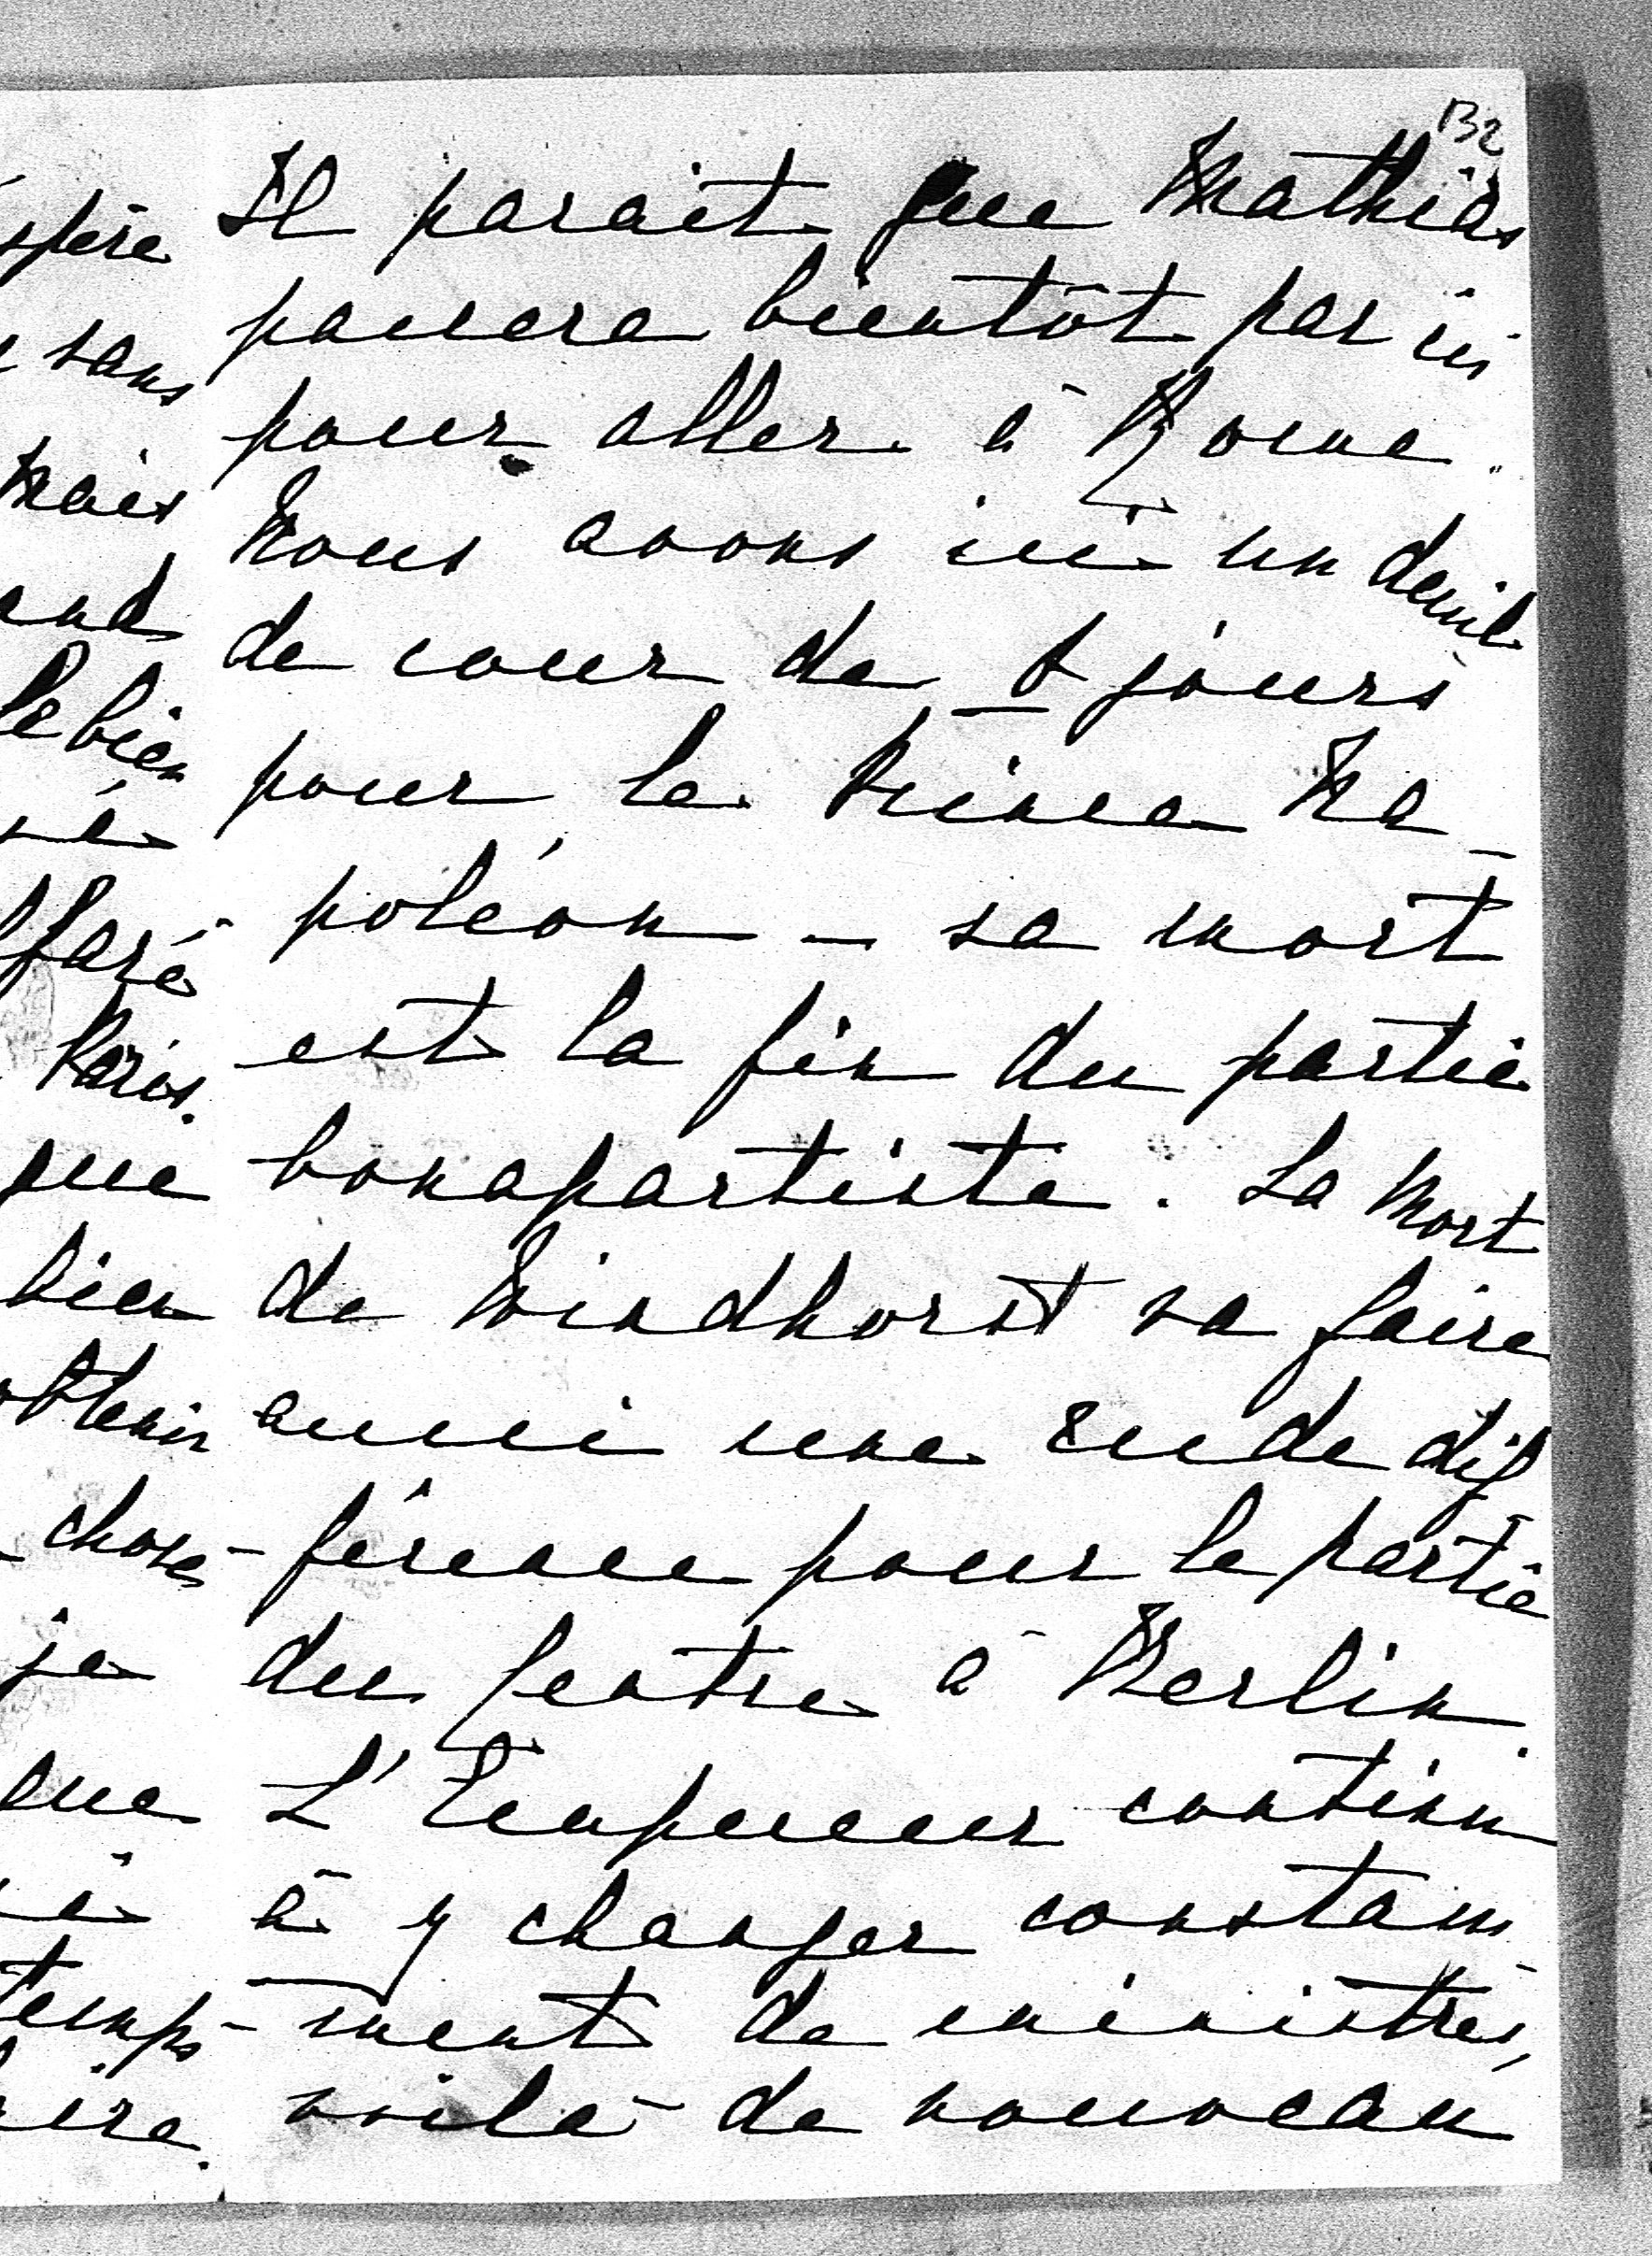 132
Il parait que Mathias
passera bientôt par ici
pour aller à Rome.
Nous avons ici un deuil
de cour de 8 jours
pour le Prince Na-
poléon - sa mort
est la fin du partie
bonapartiste. La mort
de Windhorst va faire
aussi une rude dif
- férence pour le partie
du Centre à Berlin.
L'Empereur continu
à y changer constam-
- ment de ministres,
voilà de nouveau
spère
sans
Mais
and
le bien
Paris.
que
bien
obtenir
choses
je
que
temps